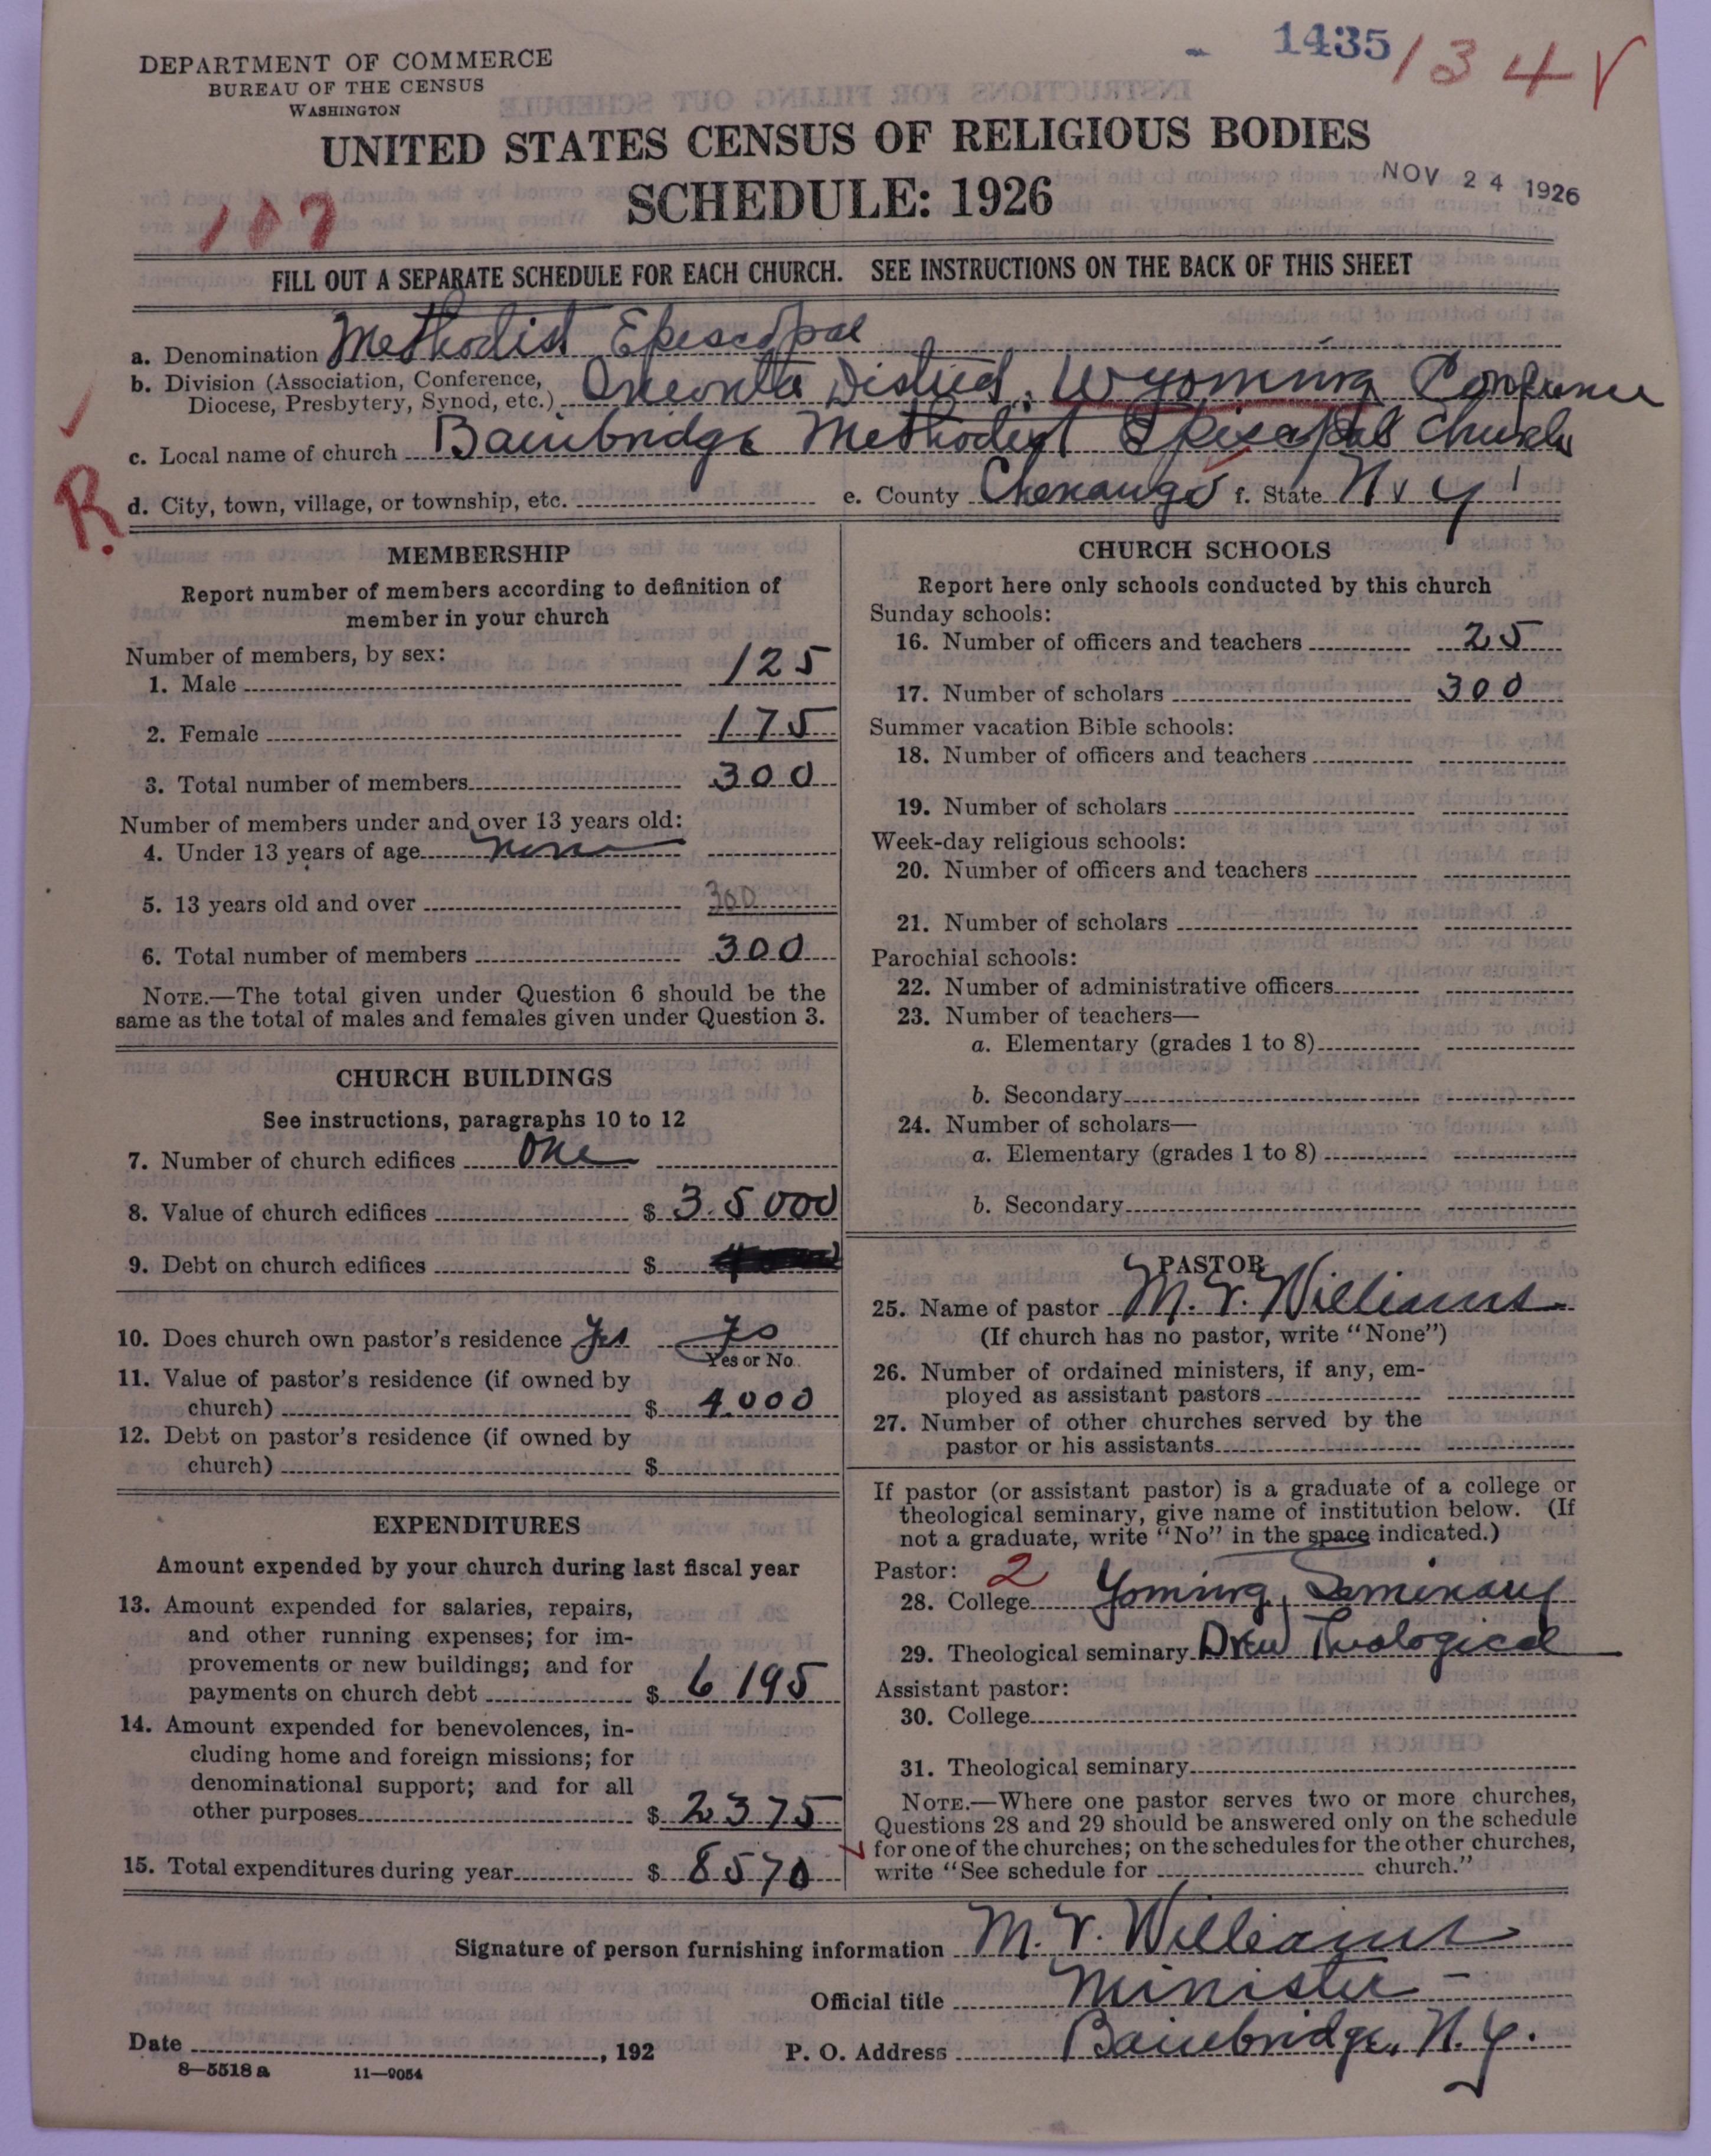 1435 134 √
DEPARTMENT OF COMMERCE
BUREAU OF THE CENSUS
WASHINGTON
UNITED STATES CENSUS OF RELIGIOUS BODIES
SCHEDULE: 1926
NOV 24 1926
107
FILL OUT A SEPARATE SCHEDULE FOR EACH CHURCH. SEE INSTRUCTIONS ON THE BACK OF THIS SHEET
a. Denomination Methodist Episcopal
b. Division (Association, Conference, Diocese, Presbytery, Synod, etc.) Oneonta District, Wyoming Conference
c. Local name of church Bainbridge Methodist Episcopal Church
R.
d. City, town, village, or township, etc. e. County Chenango f. State N Y
MEMBERSHIP
Report number of members according to definition of
member in your church
Number of members, by sex:
1. Male 125
2. Female 175
3. Total number of members 300
Number of members under and over 13 years old:
4. Under 13 years of age none
5. 13 years old and over 300
6. Total number of members 300
NOTE.—The total given under Question 6 should be the
same as the total of males and females given under Question 3.
CHURCH BUILDINGS
See instructions, paragraphs 10 to 12
7. Number of church edifices One
8. Value of church edifices $ 35000
9. Debt on church edifices $
10. Does church own pastor's residence Yes Yes
Yes or No
11. Value of pastor's residence (if owned by
church) $ 4000
12. Debt on pastor's residence (if owned by
church) $
EXPENDITURES
Amount expended by your church during last fiscal year
13. Amount expended for salaries, repairs,
and other running expenses; for im-
provements or new buildings; and for
payments on church debt $ 6195
14. Amount expended for benevolences, in-
cluding home and foreign missions; for
denominational support; and for all
other purposes $ 2375
15. Total expenditures during year $ 8570
CHURCH SCHOOLS
Report here only schools conducted by this church
Sunday schools:
16. Number of officers and teachers 25
17. Number of scholars 300
Summer vacation Bible schools:
18. Number of officers and teachers
19. Number of scholars
Week-day religious schools:
20. Number of officers and teachers
21. Number of scholars
Parochial schools:
22. Number of administrative officers
23. Number of teachers—
a. Elementary (grades 1 to 8)
b. Secondary
24. Number of scholars—
a. Elementary (grades 1 to 8)
b. Secondary
PASTOR
25. Name of pastor M. V. Williams
(If church has no pastor, write "None")
26. Number of ordained ministers, if any, em-
ployed as assistant pastors
27. Number of other churches served by the
pastor or his assistants
If pastor (or assistant pastor) is a graduate of a college or
theological seminary, give name of institution below. (If
not a graduate, write "No" in the space indicated.)
Pastor: 2
28. College Yoming Seminary
29. Theological seminary Drew Theological
Assistant pastor:
30. College
31. Theological seminary
NOTE.—Where one pastor serves two or more churches,
Questions 28 and 29 should be answered only on the schedule
for one of the churches; on the schedules for the other churches,
write "See schedule for church."
Signature of person furnishing information M. V. Williams
Official title Minister
Date , 192 P. O. Address Bainbridge, N. Y.
8—5518 a 11—9054